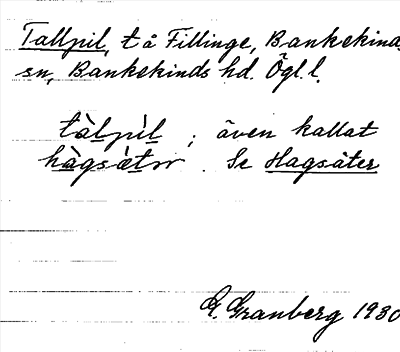 Tallpil, t å Fillinge, Bankekinds
sn, Bankekinds hd. Ögl. l.
tàlpìl ; även kallat
hàgsæ̀tər . Se Hagsäter
G. Granberg 1930